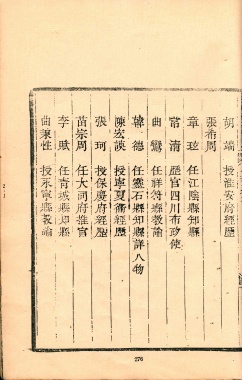 胡端 授淮安府經歷
張希周
章珽 任江陰縣知縣
常清 歷官四川布政使
曲鸞 任祥符縣教諭
韓德 任靈石縣知縣詳人物
陳宏謨 授寧夏衞經歷
張珂 授保慶府經歷
苗宗周 任大同府推官
李賦 任青城縣知縣
曲秉性 授永寧縣教諭
276